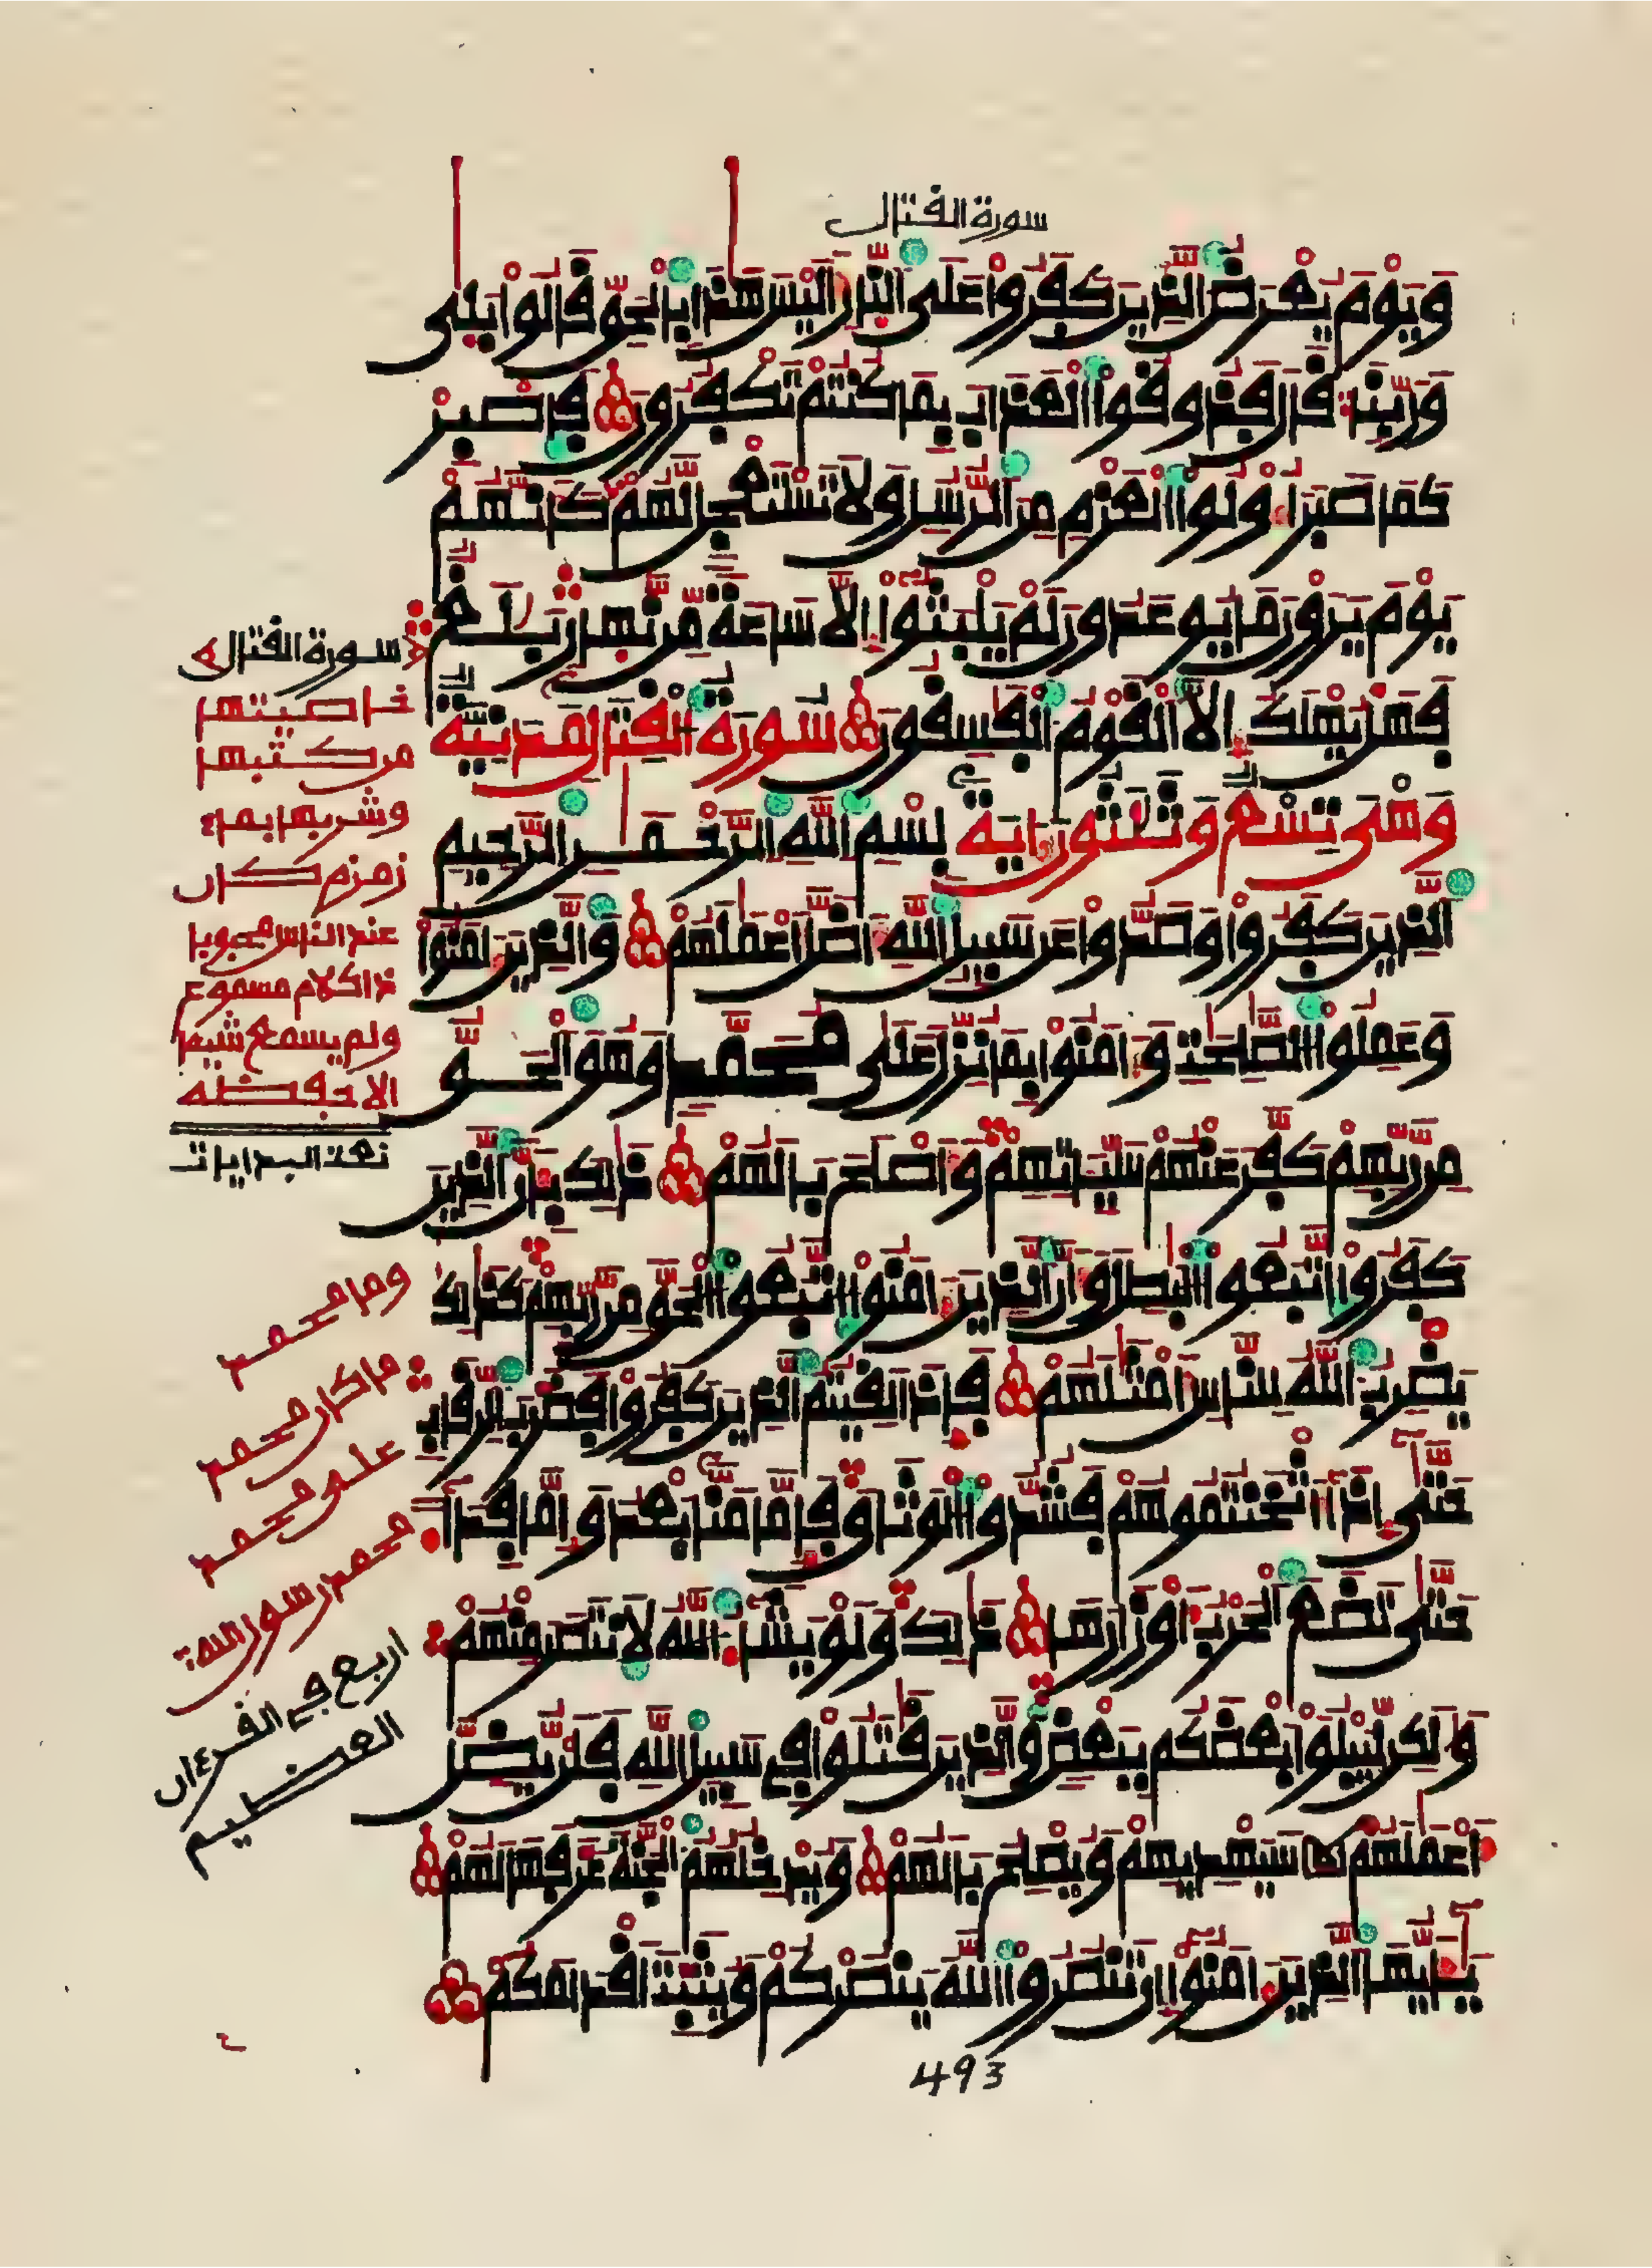 سورة القتال
وَيَوْمَ يُعْرَضُ الذِينَ كَفَرُواْ عَلَى النّارِ أَلَيْسَ هَذَا بِالْحَقِّ قَالُواْ بَلَى
وَرَبِّنَا قَالَ فَذُوقُواْ الْعَذَابَ بِمَا كُنتُمْ تَكْفُرُونَ فَاصْبِرْ
كَمَا صَبَرَ أُوْلُواْ الْعَزْمِ مِنَ الرُّسُلِ وَلاَ تَسْتَعْجِل لَّهُمْ كَأَنَّهُمْ
يَوْمَ يَرَوْنَ مَا يُوعَدُونَ لَمْ يَلْبَثُواْ إِلاَّ سَاعَةً مِّن نَّهَارٍ بَلَغٌ
فَهَلْ يُهْلَكُ إِلاَّ الْقَوْمُ الْفَسِقُونَ سُورَةُ الْقِتَالِ مَدَنِيَّةٌ
وَهْىَ تِسْعٌ وَثَلَثُونَ ءَايَةً بِسْمِ اللَّهِ الرَّحْمَنِ الرَّحِيمِ
الذِينَ كَفَرُواْ وَصَدُّواْ عَن سَبِيلِ اللَّهِ أَضَلَّ أَعْمَلَهُمْ وَالذِينَ ءَامَنُواْ
وَعَمِلُواْ الصَّلِحَتِ وَءَامَنُواْ بِمَا نُزِّلَ عَلَى مُحَمَّدٍ وَهُوَ الْحَقُّ
مِن رَّبِّهِمْ كَفَّرَ عَنْهُمْ سَيِّـَٔاتِهِمْ وَأَصْلَحَ بَالَهُمْ ذَلِكَ بِأَنَّ الذِينَ
كَفَرُواْ اتَّبَعُواْ الْبَطِلَ وَأَنَّ الذِينَ ءَامَنُواْ اتَّبَعُواْ الْحَقَّ مِن رَّبِّهِمْ كَذَلِكَ
يَضْرِبُ اللَّهُ لِلنَّاسِ أَمْثَلَهُمْ فَإِذَا لَقِيتُمُ الذِينَ كَفَرُواْ فَضَرْبَ الرِّقَابِ
حَتَّى إِذَا أَثْخَنتُمُوهُمْ فَشُدُّواْ الْوَثَاقَ فَإِمَّا مَنّاً بَعْدُ وَإِمَّا فِدَآءً
حَتَّى تَضَعَ الْحَرْبُ أَوْزَارَهَا ذَلِكَ وَلَوْ يَشَآءُ اللَّهُ لاَنتَصَرَ مِنْهُمْ
وَلَكِن لِّيَبْلُوَاْ بَعْضَكُم بِبَعْضٍ وَالذِينَ قَتَلُواْ فِي سَبِيلِ اللَّهِ فَلَنْ يُّضِلَّ
أَعْمَلَهُمْ سَيَهْدِيهِمْ وَيُصْلِحُ بَالَهُمْ وَيُدْخِلُهُمُ الْجَنَّةَ عَرَّفَهَا لَهُمْ
يَأَيُّهَا الذِينَ ءَامَنُواْ إِن تَنصُرُواْ اللَّهَ يَنصُرْكُمْ وَيُثَبِّتْ أَقْدَامَكُمْ
493
سورة القتال
خاصيتها
من كتبها
وشربها بماء
زمزم كان
عند الناس محبوبا
ذا كلام مسموع
ولم يسمع شيئا
الا حفظه
نعت البدايات
وما محمد
ما كان محمد
على محمد
محمد رسول الله
اربع في القرءان
العظيم